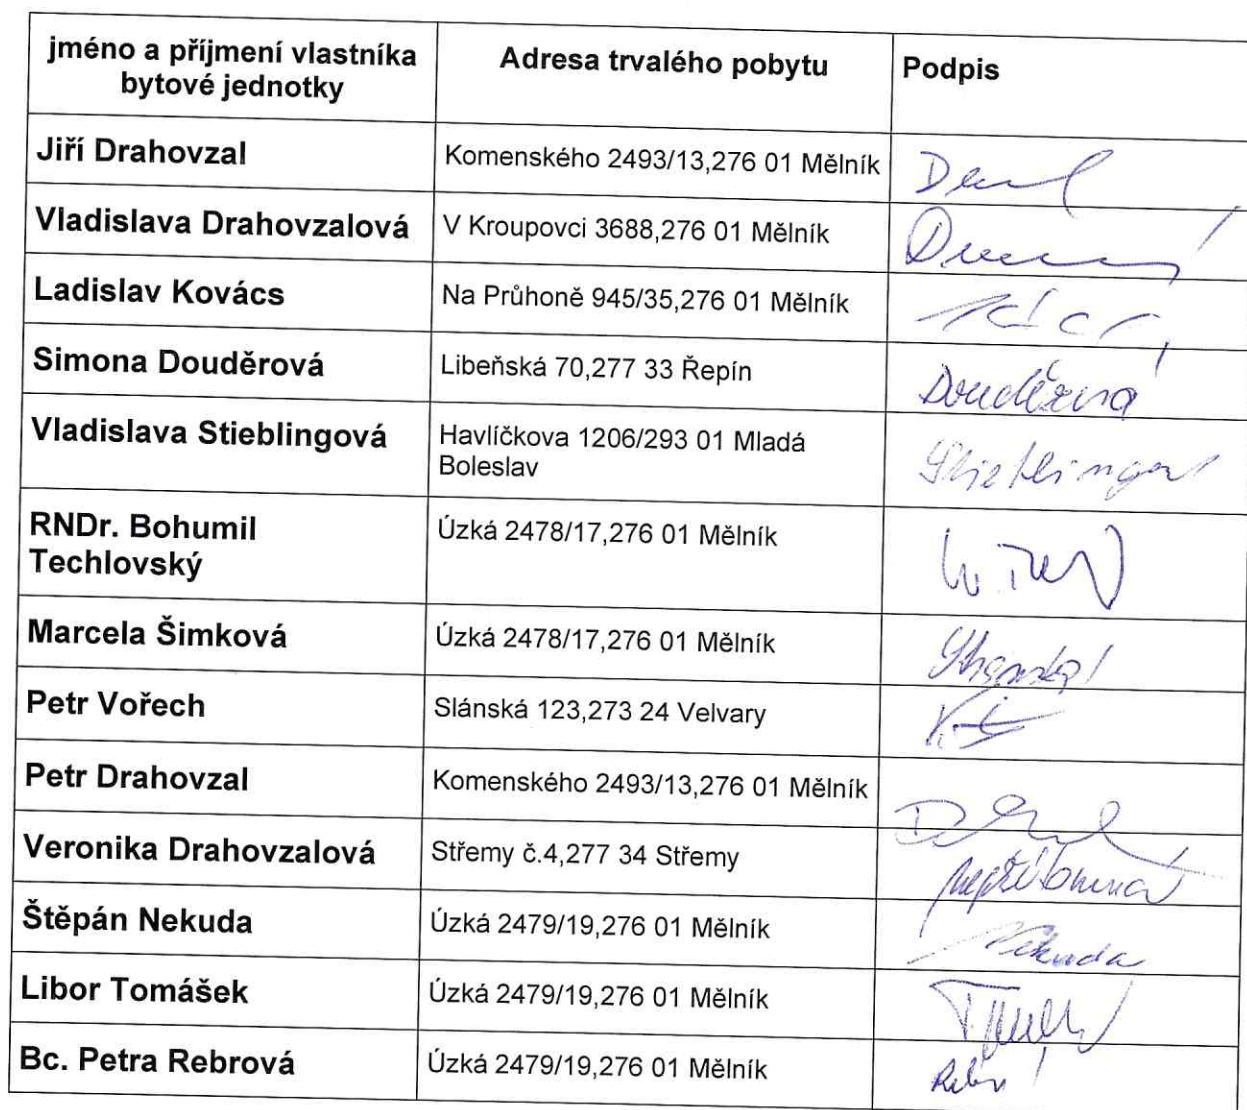 jméno a příjmení vlastníka
bytové jednotky
Adresa trvalého pobytu
Podpis
Jiří Drahovzal
Komenského 2493/13,276 01 Mělník
Vladislava Drahovzalová
V Kroupovci 3688,276 01 Mělník
Ladislav Kovács
Na Průhoně 945/35,276 01 Mělník
Simona Douděrová
Libeňská 70,277 33 Řepín
Douděrová
Vladislava Stieblingová
Havlíčkova 1206/293 01 Mladá
Boleslav
RNDr. Bohumil
Techlovský
Úzká 2478/17,276 01 Mělník
Marcela Šimková
Úzká 2478/17,276 01 Mělník
Petr Vořech
Slánská 123,273 24 Velvary
Petr Drahovzal
Komenského 2493/13,276 01 Mělník
Veronika Drahovzalová
Střemy č.4,277 34 Střemy
nepřítomná
Štěpán Nekuda
Úzká 2479/19,276 01 Mělník
Nekuda
Libor Tomášek
Úzká 2479/19,276 01 Mělník
Bc. Petra Rebrová
Úzká 2479/19,276 01 Mělník